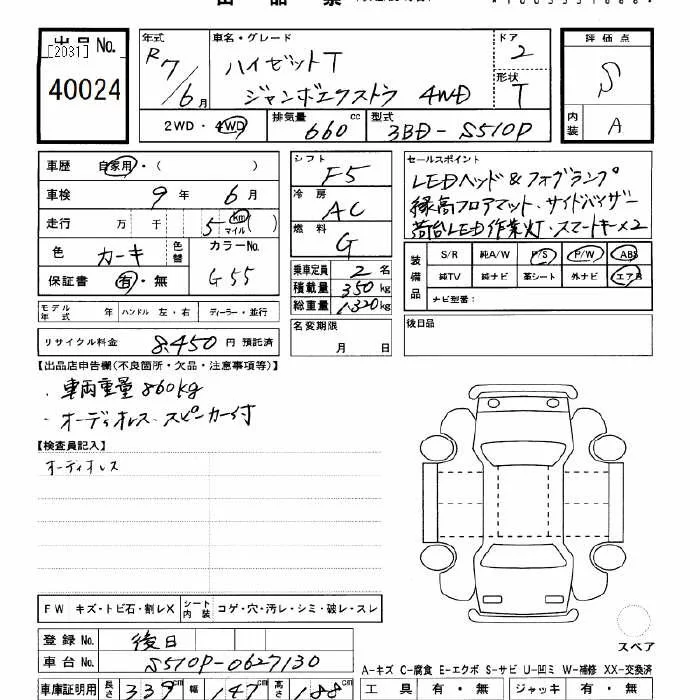 出品票
出品No.
[2031]
40024
年式 R7/6月
車名・グレード ハイゼットT
ジャンボエクストラ 4WD
ドア 2
形状 T
評価点 S
内装 A
2WD・4WD
排気量 660 cc
型式 3BD-S510P
車歴 自家用・( )
車検 9年 6月
走行 万 千 5 km マイル ( )
色 カーキ 色替
カラーNo. G55
保証書 有・無
モデル年式 年 ハンドル 左・右 ディーラー・並行
リサイクル料金 8,450 円 預託済
シフト F5
冷房 AC
燃料 G
乗車定員 2 名
積載量 350 kg
総重量 1,320 kg
名変期限
月 日
セールスポイント
LEDヘッド&フォグランプ
縁高フロアマット・サイドバイザー
荷台LED作業灯・スマートキー×2
装備品
S/R 純A/W P/S P/W ABS
純TV 純ナビ 革シート 外ナビ エアB
ナビ型番:
後日品
【出品店申告欄(不良箇所・欠品・注意事項等)】
・車両重量860kg
・オーディオレス・スピーカー付
【検査員記入】
オーディオレス
FW キズ・トビ石・割レX
シート内装 コゲ・穴・汚レ・シミ・破レ・スレ
登録No. 後日
車台No. S510P-0627130
車庫証明用 長さ 339 cm 幅 147 cm 高さ 188 cm
スペア
A-キズ C-腐食 E-エクボ S-サビ U-凹ミ W-補修 XX-交換済
工具 有・無 ジャッキ 有・無